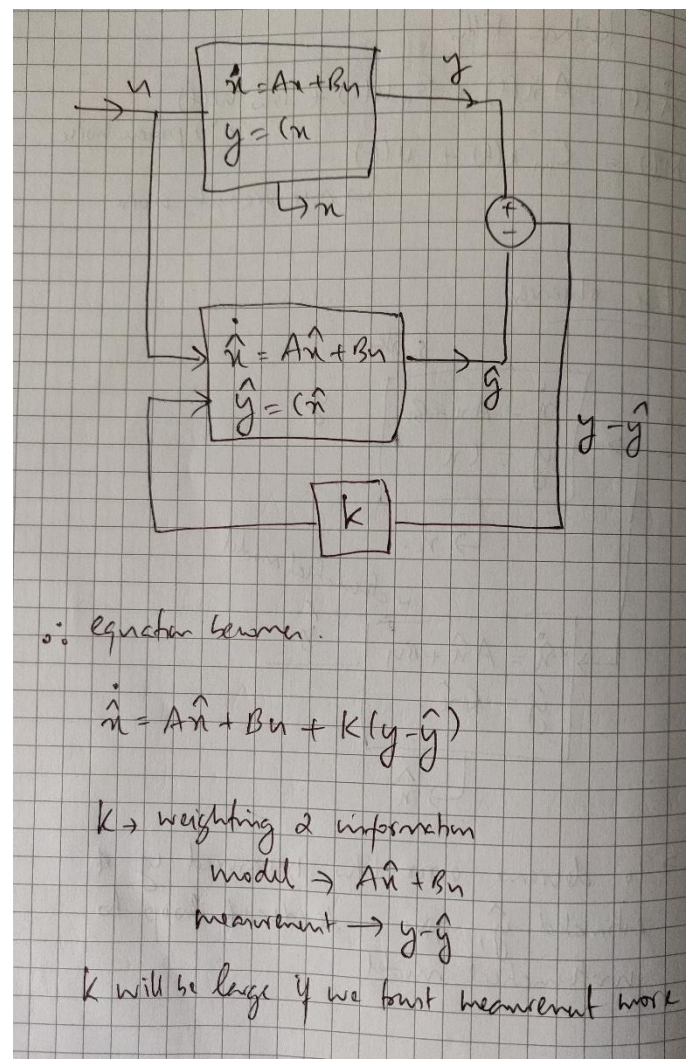 u
ẋ = Ax + Bu
y = Cx
y
→ x
+
-
x̂̇ = Ax̂ + Bu
ŷ = Cx̂
ŷ
y - ŷ
k
∴ equation becomes.
x̂̇ = Ax̂ + Bu + K(y-ŷ)
K → weighting 2 information
model → Ax̂ + Bu
measurement → y-ŷ
K will be large if we trust measurement more